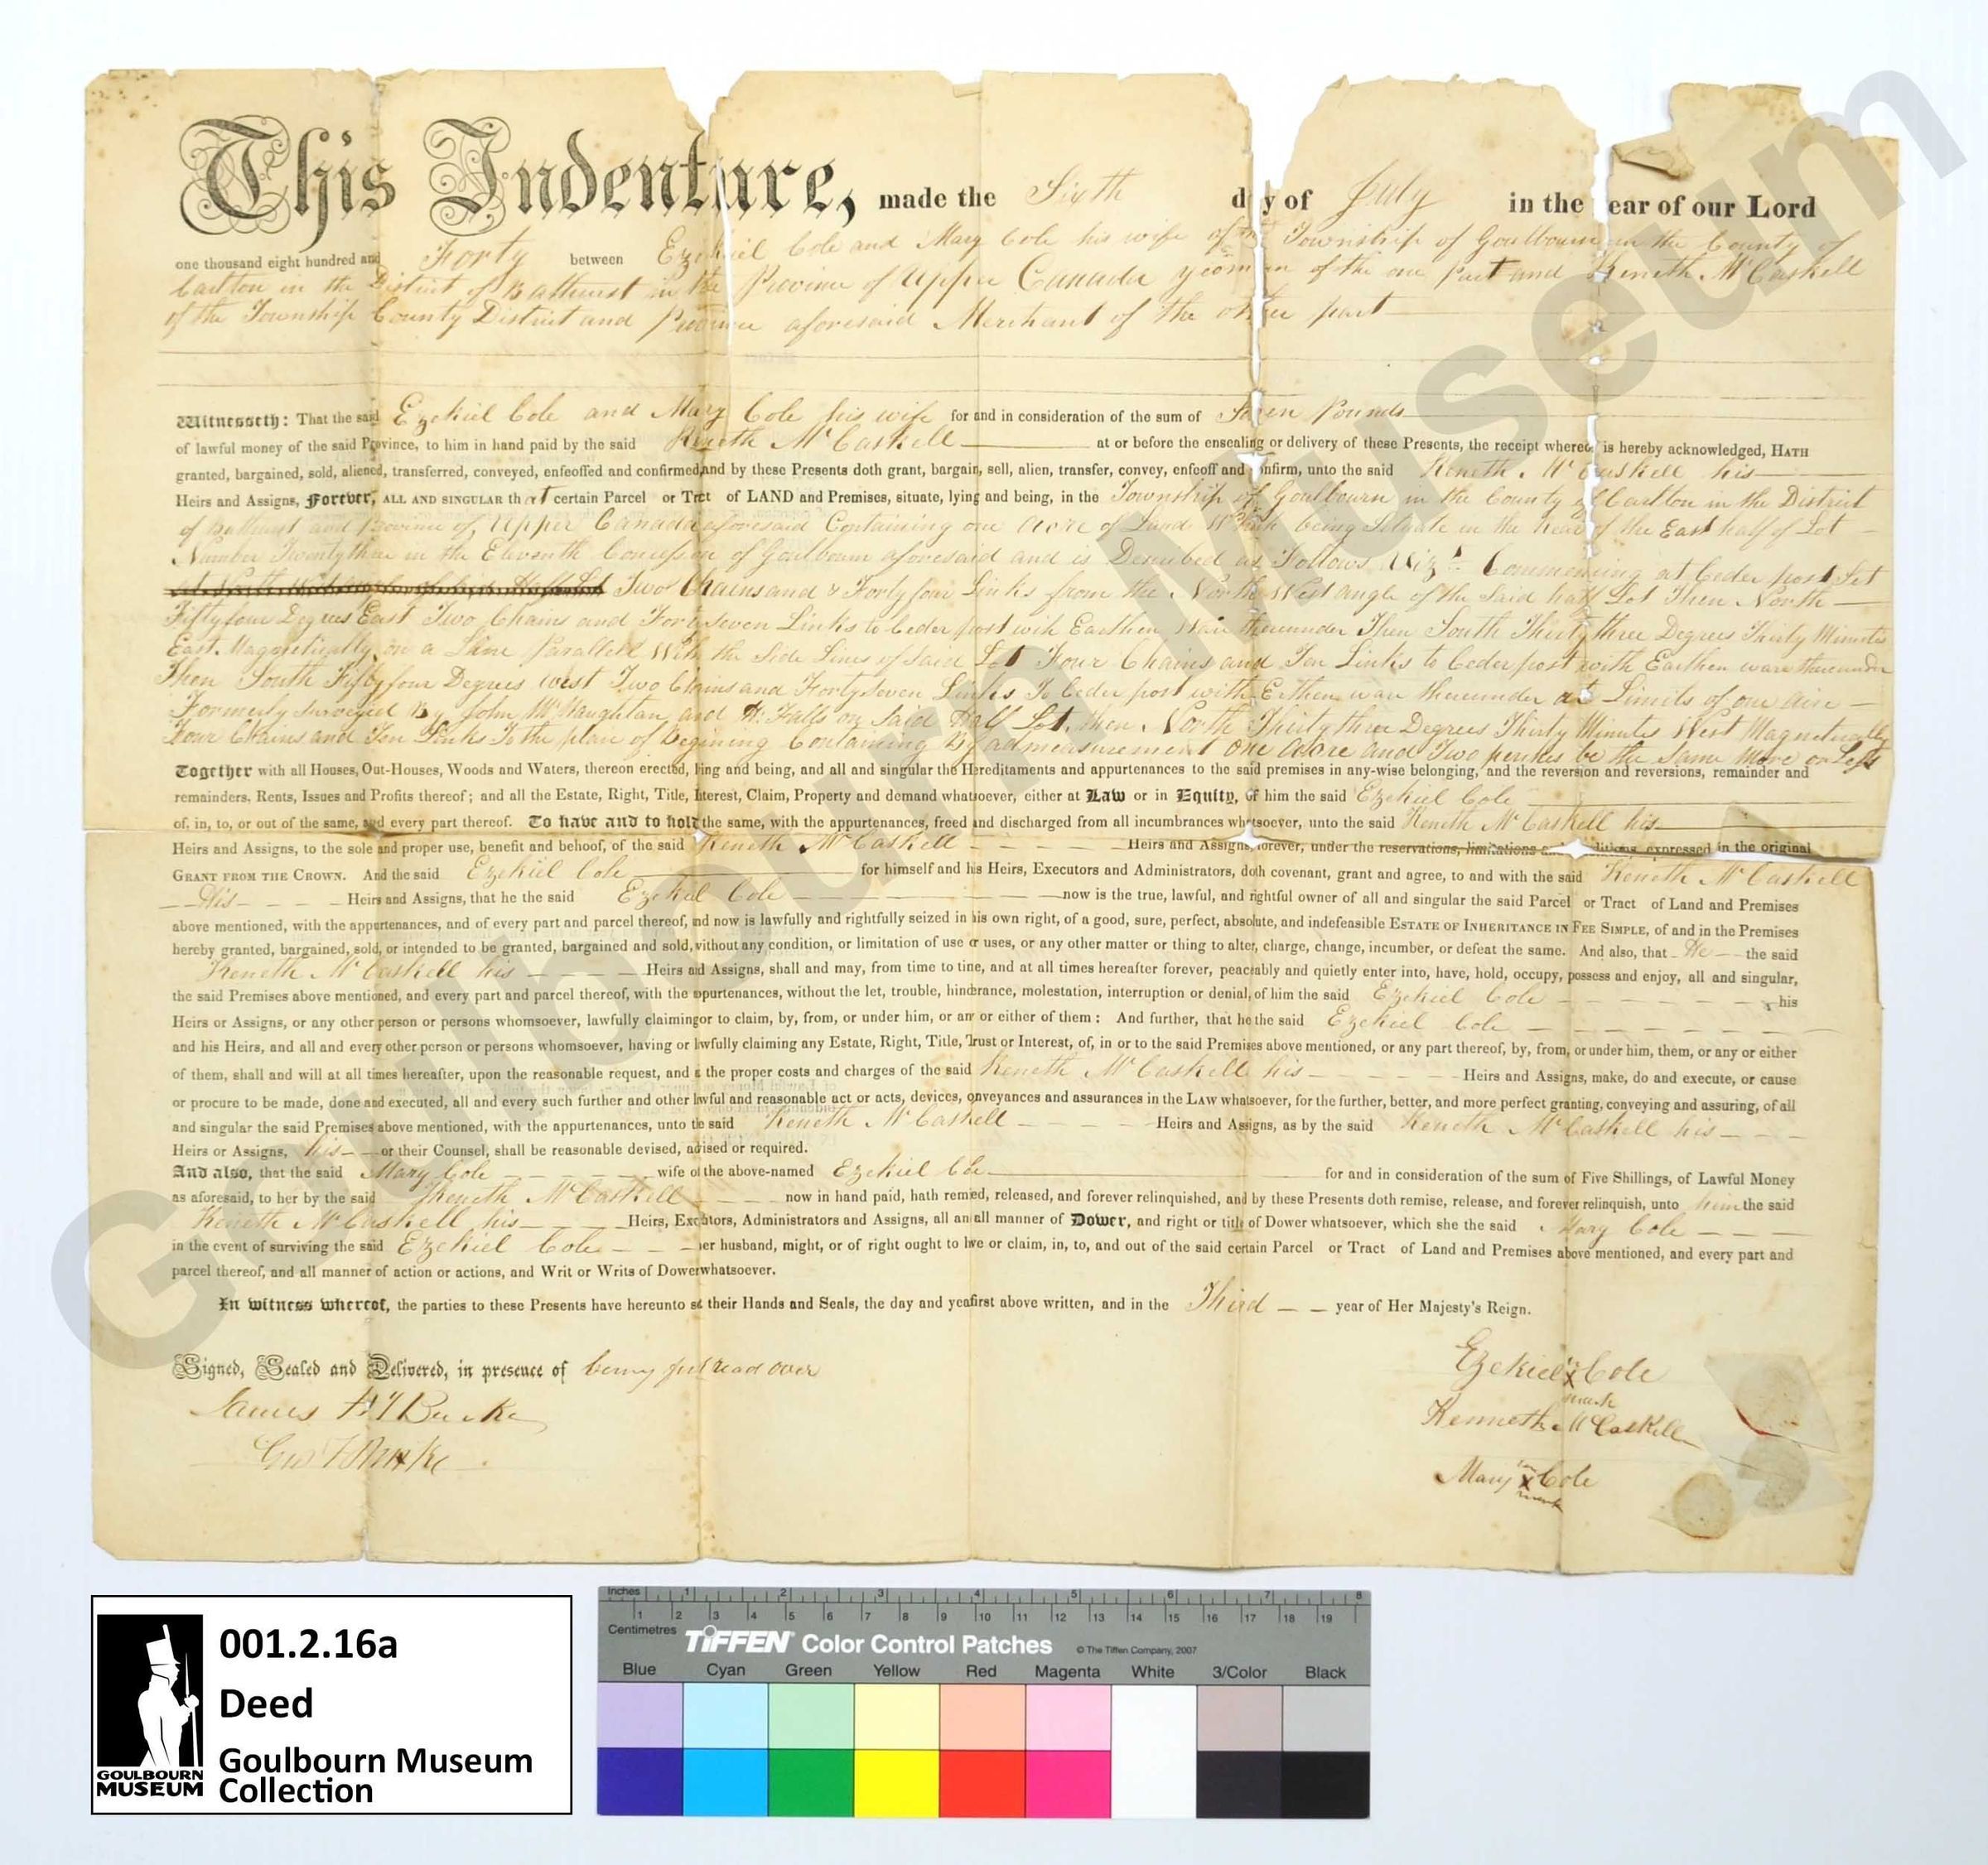 This Indenture, made the Sixth d y of July in the ear of our Lord
one thousand eight hundred and Forty between Ezekiel Cole and Mary Cole his wife of the Township of Goulbourn in the County of
Carlton in the District of Bathurst in the Province of Upper Canada yeoman of the one part and Keneth McCaskell
of the Township County District and Province aforesaid Merchant of the other part
Witnesseth: That the said Ezekiel Cole and Mary Cole his wife for and in consideration of the sum of Pounds
of lawful money of the said Province, to him in hand paid by the said Keneth McCaskell at or before the ensealing or delivery of these Presents, the receipt whereo is hereby acknowledged, HATH
granted, bargained, sold, aliened, transferred, conveyed, enfeoffed and confirmed, and by these Presents doth grant, bargain, sell, alien, transfer, convey, enfeoff and onfirm, unto the said Keneth McCaskell his
Heirs and Assigns, Forever, ALL AND SINGULAR that certain Parcel or Trct of LAND and Premises, situate, lying and being, in the Township of Goulbourn in the County of Carlton in the District
of Bathurst and Province of Upper Canada aforesaid Containing one acre of Land Which being Situate in the Rear of the East half of Lot
Number Twenty three in the Eleventh Concession of Goulbourn aforesaid and is Described as Follows Viz. Commencing at Ceder post Set
Two Chains and & Forty four Links from the North West angle of the Said half Lot Then North
Fifty four Degrees East Two Chains and Forty Seven Links to Ceder post with Earthen Ware thereunder Then South Thirty three Degrees Thirty Minutes
East Magnetically on a Line Parallell With the Side Lines of Said Lot Four Chains and Ten Links to Ceder post with Earthen ware thereunder
Then South Fifty four Degrees west Two Chains and Forty Seven Links To Ceder post with Erthen ware thereunder at Limits of one acre
Formerly Surveyed By John McNaughtan and H. Falls on Said Half Lot, then North Thirty three Degrees Thirty Minutes West Magnetically
Four Chains and Ten Links To the place of Begining Containing By admeasurement one acre and Two perches be the Same More or Less
Together with all Houses, Out-Houses, Woods and Waters, thereon erected, ling and being, and all and singular the Hereditaments and appurtenances to the said premises in any-wise belonging, and the reversion and reversions, remainder and
remainders, Rents, Issues and Profits thereof; and all the Estate, Right, Title, Interest, Claim, Property and demand whatsoever, either at Law or in Equity, of him the said Ezekiel Cole
of, in, to, or out of the same, and every part thereof. To have and to hold the same, with the appurtenances, freed and discharged from all incumbrances whatsoever, unto the said Keneth McCaskell his
Heirs and Assigns, to the sole and proper use, benefit and behoof, of the said Keneth McCaskell Heirs and Assigns, forever, under the reservations, limitations and ditions, expressed in the original
GRANT FROM THE CROWN. And the said Ezekiel Cole for himself and his Heirs, Executors and Administrators, doth covenant, grant and agree, to and with the said Keneth McCaskell
His Heirs and Assigns, that he the said Ezekiel Cole now is the true, lawful, and rightful owner of all and singular the said Parcel or Tract of Land and Premises
above mentioned, with the appurtenances, and of every part and parcel thereof, and now is lawfully and rightfully seized in his own right, of a good, sure, perfect, absolute, and indefeasible ESTATE OF INHERITANCE IN FEE SIMPLE, of and in the Premises
hereby granted, bargained, sold, or intended to be granted, bargained and sold, without any condition, or limitation of use or uses, or any other matter or thing to alter, charge, change, incumber, or defeat the same. And also, that He the said
Keneth McCaskell his Heirs and Assigns, shall and may, from time to time, and at all times hereafter forever, peaceably and quietly enter into, have, hold, occupy, possess and enjoy, all and singular,
the said Premises above mentioned, and every part and parcel thereof, with the appurtenances, without the let, trouble, hinderance, molestation, interruption or denial, of him the said Ezekiel Cole his
Heirs or Assigns, or any other person or persons whomsoever, lawfully claiming or to claim, by, from, or under him, or any or either of them: And further, that he the said Ezekiel Cole
and his Heirs, and all and every other person or persons whomsoever, having or lawfully claiming any Estate, Right, Title, Trust or Interest, of, in or to the said Premises above mentioned, or any part thereof, by, from, or under him, them, or any or either
of them, shall and will at all times hereafter, upon the reasonable request, and at the proper costs and charges of the said Keneth McCaskell his Heirs and Assigns, make, do and execute, or cause
or procure to be made, done and executed, all and every such further and other lawful and reasonable act or acts, devices, conveyances and assurances in the LAW whatsoever, for the further, better, and more perfect granting, conveying and assuring, of all
and singular the said Premises above mentioned, with the appurtenances, unto the said Keneth McCaskell Heirs and Assigns, as by the said Keneth McCaskell his
Heirs or Assigns, his or their Counsel, shall be reasonable devised, advised or required.
And also, that the said Mary Cole wife of the above-named Ezekiel Cole for and in consideration of the sum of Five Shillings, of Lawful Money
as aforesaid, to her by the said Keneth McCaskell now in hand paid, hath remied, released, and forever relinquished, and by these Presents doth remise, release, and forever relinquish, unto him the said
Keneth McCaskell his Heirs, Executors, Administrators and Assigns, all and all manner of Dower, and right or title of Dower whatsoever, which she the said Mary Cole
in the event of surviving the said Ezekiel Cole her husband, might, or of right ought to have or claim, in, to, and out of the said certain Parcel or Tract of Land and Premises above mentioned, and every part and
parcel thereof, and all manner of action or actions, and Writ or Writs of Dower whatsoever.
In witness whereof, the parties to these Presents have hereunto set their Hands and Seals, the day and year first above written, and in the Third year of Her Majesty's Reign.
Signed, Sealed and Delivered, in presence of being first read over
James H Burke
Geo T Burke
Ezekiel his X mark Cole
Kenneth McCaskell
Mary her X mark Cole
Goulbourn Museum
001.2.16a
Deed
Goulbourn Museum
Collection
GOULBOURN
MUSEUM
Inches 1 2 3 4 5 6 7 8
1 2 3 4 5 6 7 8 9 10 11 12 13 14 15 16 17 18 19
Centimetres
TIFFEN Color Control Patches © The Tiffen Company, 2007
Blue Cyan Green Yellow Red Magenta White 3/Color Black